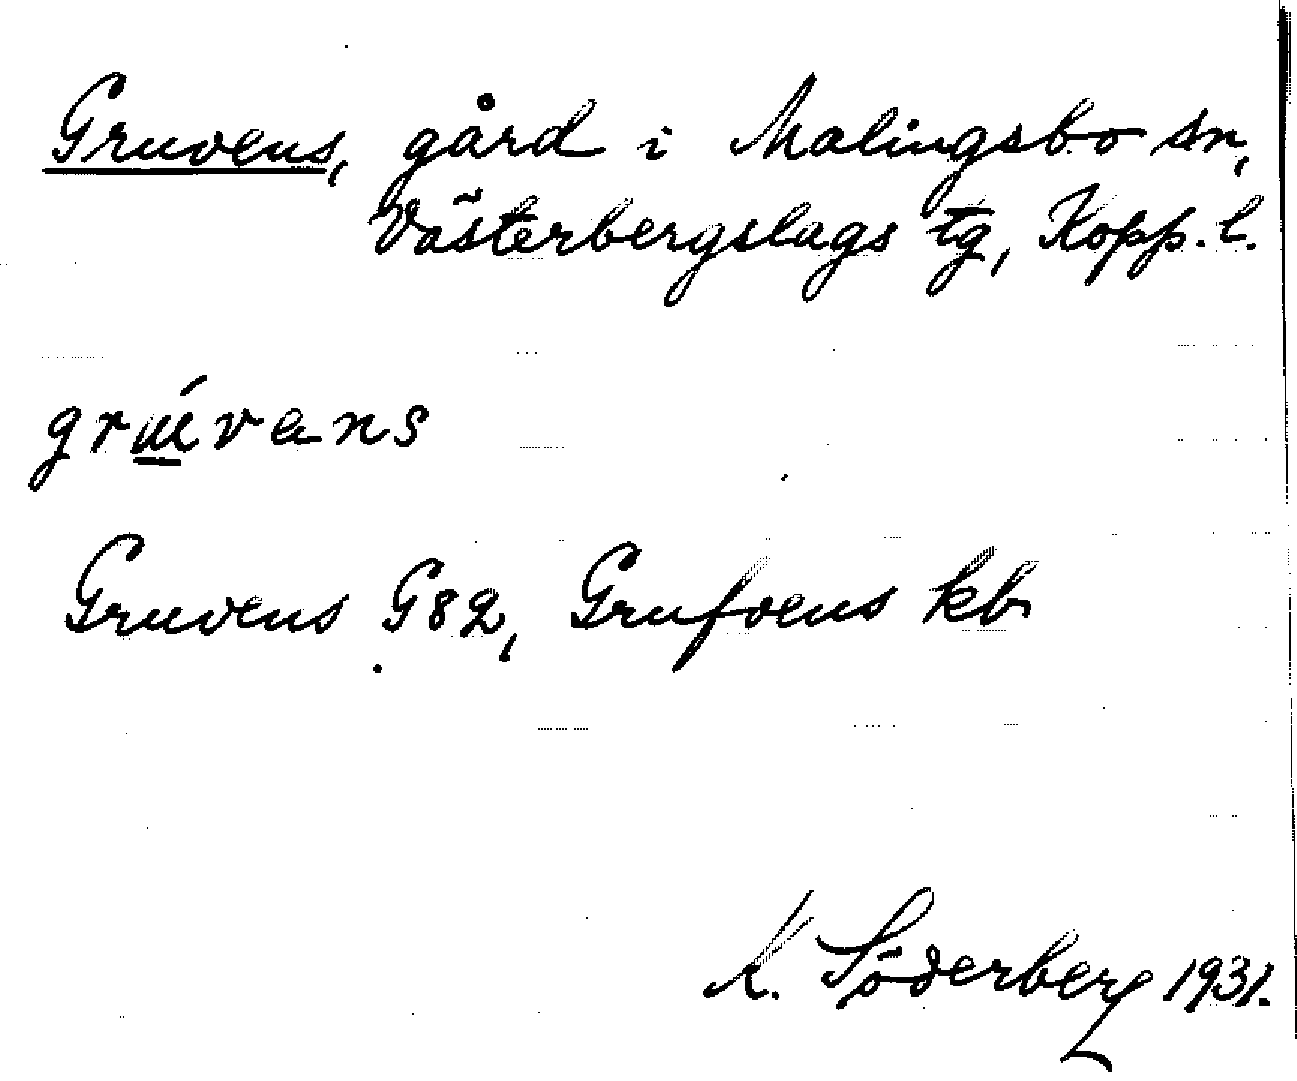 Gruvens, gård i Malingsbo sn,
Västerbergslags tg, Kopp. l.
grúvans
Gruvens G82, Grufvens kb
K. Söderberg 1931.